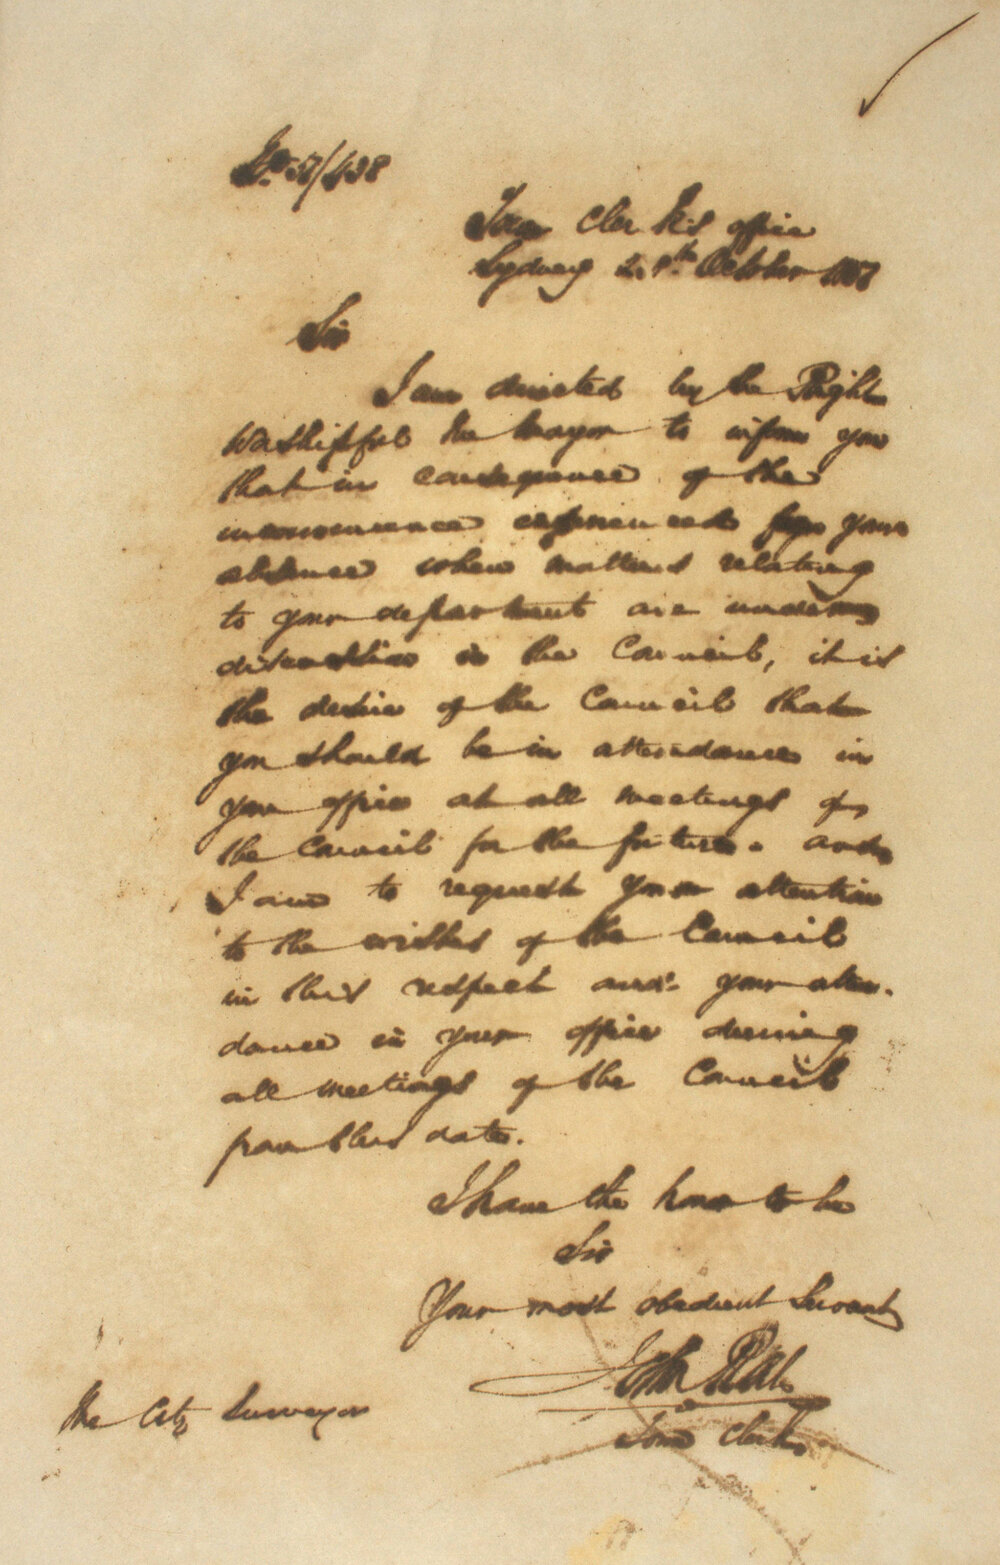 No. 57/438
Town Clerk's office
Sydney 21st October 1857
Sir
I am directed by the Right
Worshipful the Mayor to inform you
that in consequence of the
inconvenience experienced from your
absence when matters relating
to your department are under
discussion in the Council, it is
the desire of the Council that
you should be in attendance in
your office at all meetings of
the Council for the future. and
I am to request your attention
to the wishes of the Council
in this respect and your atten-
dance in your office during
all meetings of the Council
from this date.
I have the honor to be
Sir
Your most obedient Servant
John
Town Clerk
The City Surveyor